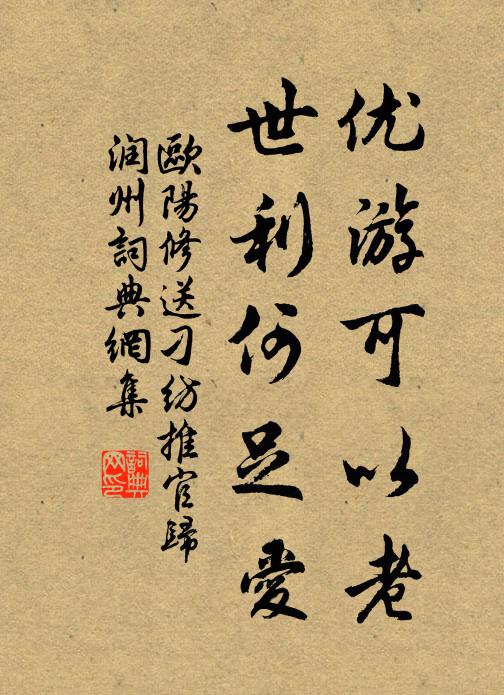 优游可以老
世利何足愛
歐陽修送刁紡推官歸
润州詞典網集
詞典
网印